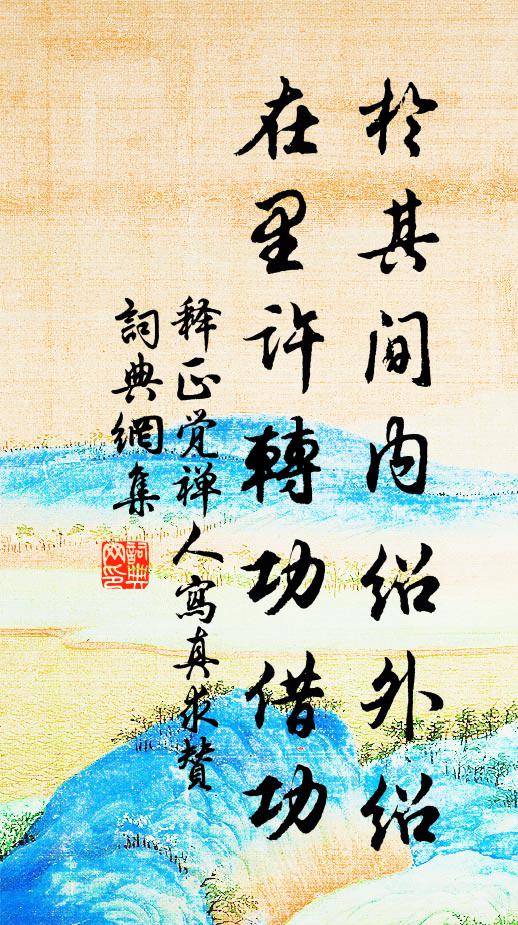 於其间内绍外绍
在里许轉功借功
释正觉禅人寫真求赞
词典網集
詞典網印